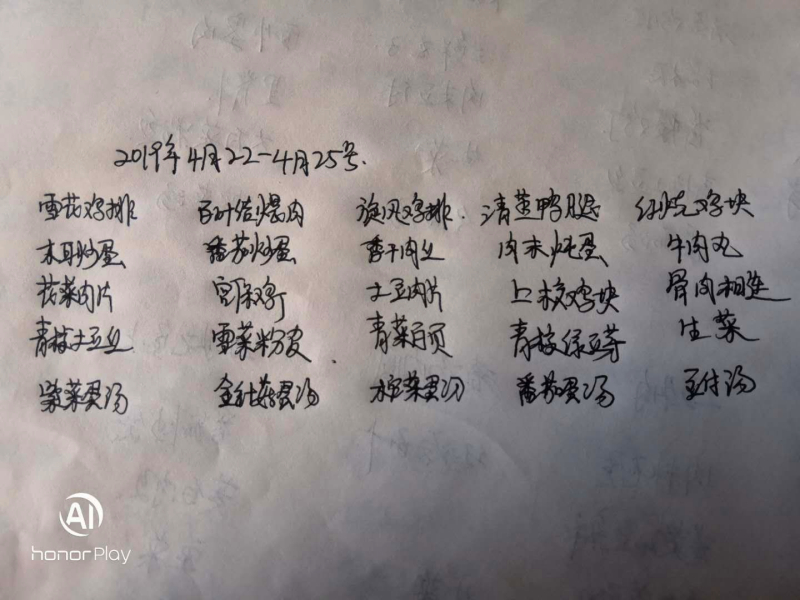 2019年4月22-4月25号.
雪花鸡排 百叶结煨肉 旋风鸡排. 清蒸鸭腿 红烧鸡块
木耳炒蛋 番茄炒蛋 香干肉丝 肉末炖蛋 牛肉丸
花菜肉片 宫保鸡丁 土豆肉片 上校鸡块 骨肉相连
青椒土豆丝 雪菜粉皮 青菜百页 青椒绿豆芽 生菜
紫菜蛋汤 金针菇蛋汤 榨菜蛋汤 番茄蛋汤 豆付汤
AI
honor Play